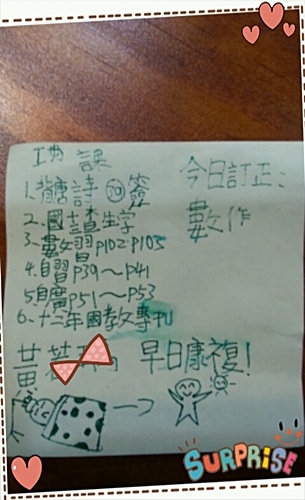 功課
1.背唐詩 70 簽
2.國語查生字
3.數習P102~P105
4.自習P39~P41
5.自廣P51~P53
6.十二年國教專刊
今日訂正:
數作
黃 早日康復!
SURPRiSE